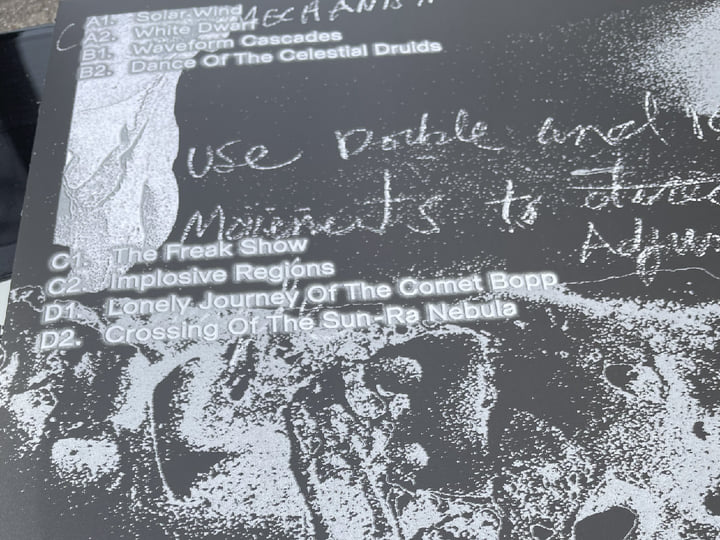 A1. Solar Wind
A2. White Dwarf
B1. Waveform Cascades
B2. Dance Of The Celestial Druids
use Double and
Movements to
C1. The Freak Show
C2. Implosive Regions
D1. Lonely Journey Of The Comet Bopp
D2. Crossing Of The Sun-Ra Nebula